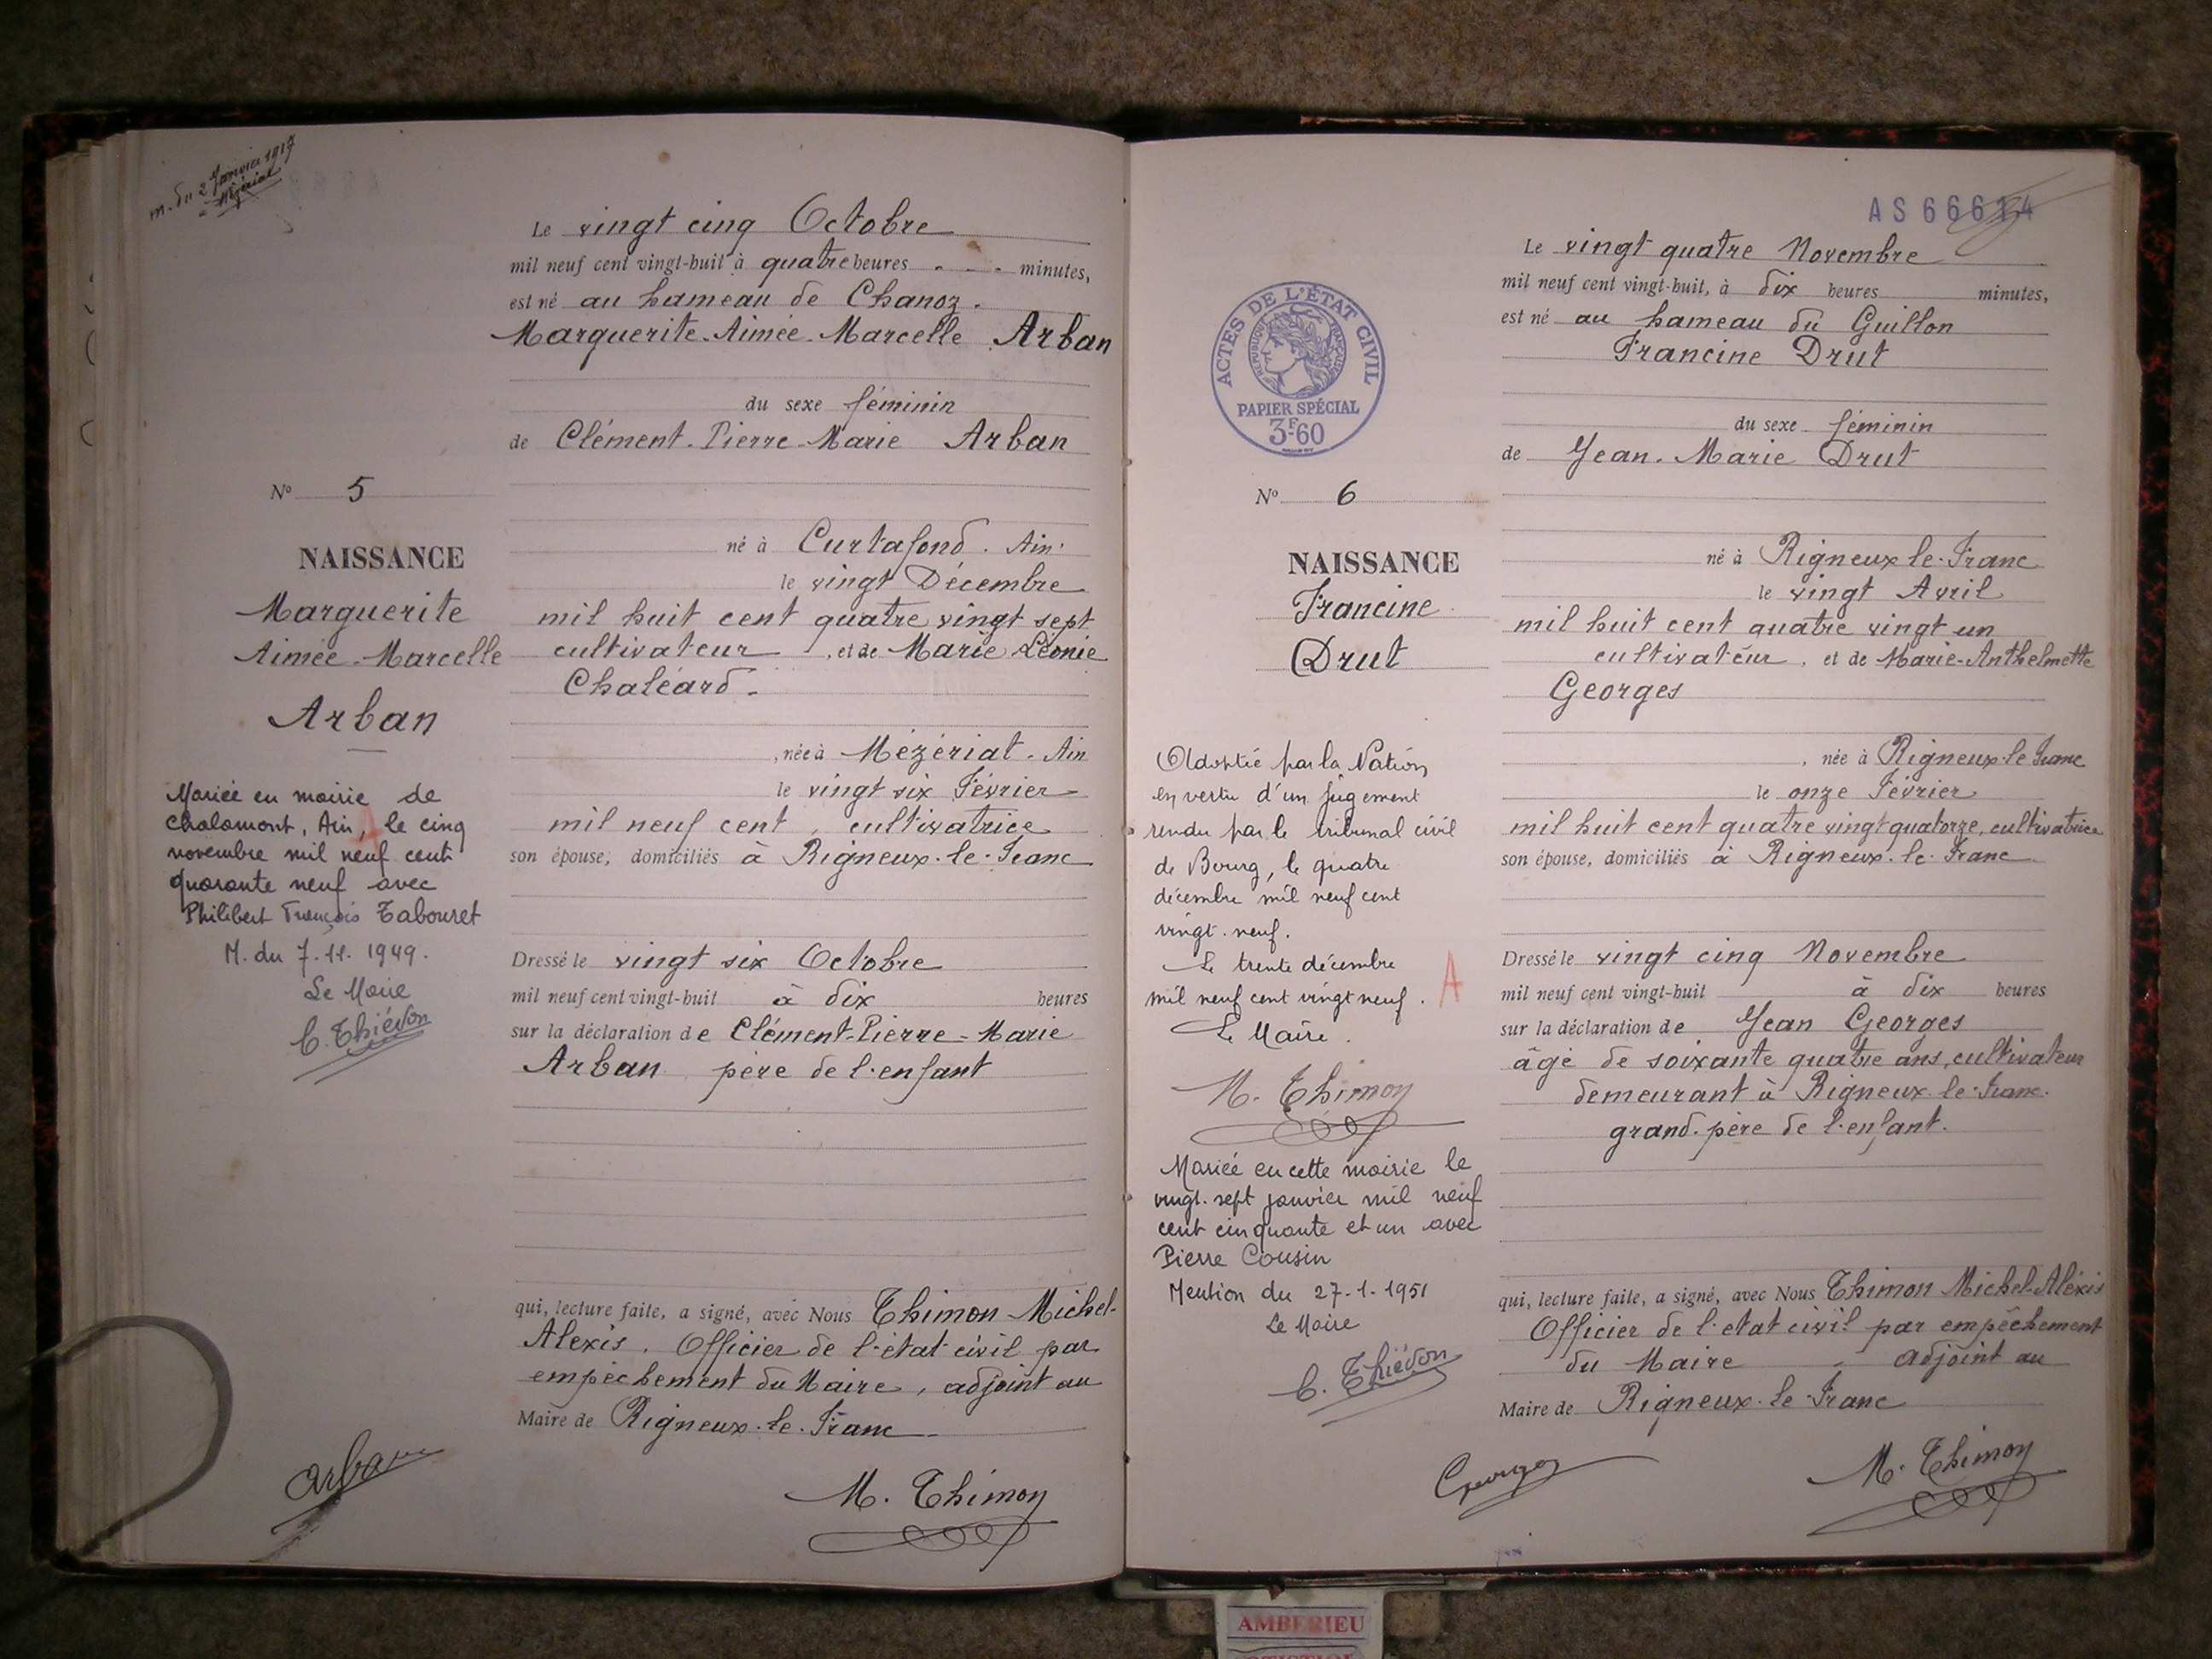 m. du 2 Janvier 1917
à Mézériat
Le vingt cinq Octobre
mil neuf cent vingt-huit à quatre heures - - minutes,
est né au hameau de Chanoz.
Marguerite-Aimée-Marcelle Arban
du sexe féminin
de Clément-Pierre-Marie Arban
N° 5
né à Curtafond. Ain.
NAISSANCE
le vingt Décembre
Marguerite
mil huit cent quatre vingt sept
Aimée-Marcelle
cultivateur, et de Marie Léonie
Chaléard.
Arban
née à Mézériat. Ain
le vingt six Février
mil neuf cent, cultivatrice
son épouse, domiciliés à Rigneux-le-Franc
Mariée en mairie de
Chalamont, Ain, le cinq
A
novembre mil neuf cent
quarante neuf avec
Philibert François Tabouret
M. du 7.11.1949.
Le Maire
C. Thiévon
Dressé le vingt six Octobre
mil neuf cent vingt-huit à dix heures
sur la déclaration de Clément-Pierre-Marie
Arban père de l'enfant
qui, lecture faite, a signé, avec Nous Thimon Michel-
Alexis. Officier de l'état civil par
empêchement du Maire, adjoint au
Maire de Rigneux-le-Franc
Arban
M. Thimon
AS 66614
ACTES DE L'ÉTAT CIVIL
RÉPUBLIQUE FRANÇAISE
PAPIER SPÉCIAL
3F.60
Le vingt quatre Novembre
mil neuf cent vingt-huit, à dix heures minutes,
est né au hameau du Guillon
Francine Drut
du sexe féminin
de Jean-Marie Drut
N° 6
né à Rigneux le-Franc
NAISSANCE
le vingt Avril
Francine
mil huit cent quatre vingt un
Drut
cultivateur, et de Marie-Anthelmette
Georges
née à Rigneux-le Franc
le onze Février
mil huit cent quatre vingt quatorze, cultivatrice
son épouse, domiciliés à Rigneux-le-Franc
Adoptée par la Nation
en vertu d'un jugement
rendu par le tribunal civil
de Bourg, le quatre
décembre mil neuf cent
vingt-neuf.
Le trente décembre
mil neuf cent vingt neuf.
A
Le Maire.
M. Thimon
Mariée en cette mairie le
vingt-sept janvier mil neuf
cent cinquante et un avec
Pierre Cousin
Mention du 27-1-1951
Le Maire
C. Thiévon
Dressé le vingt cinq Novembre
mil neuf cent vingt-huit à dix heures
sur la déclaration de Jean Georges
âgé de soixante quatre ans, cultivateur
demeurant à Rigneux-le-Franc.
grand-père de l'enfant.
qui, lecture faite, a signé, avec Nous Thimon Michel-Aléxis
Officier de l'etat civil par empêchement
du Maire - adjoint au
Maire de Rigneux-le-Franc
Georges
M. Thimon
AMBERIEU